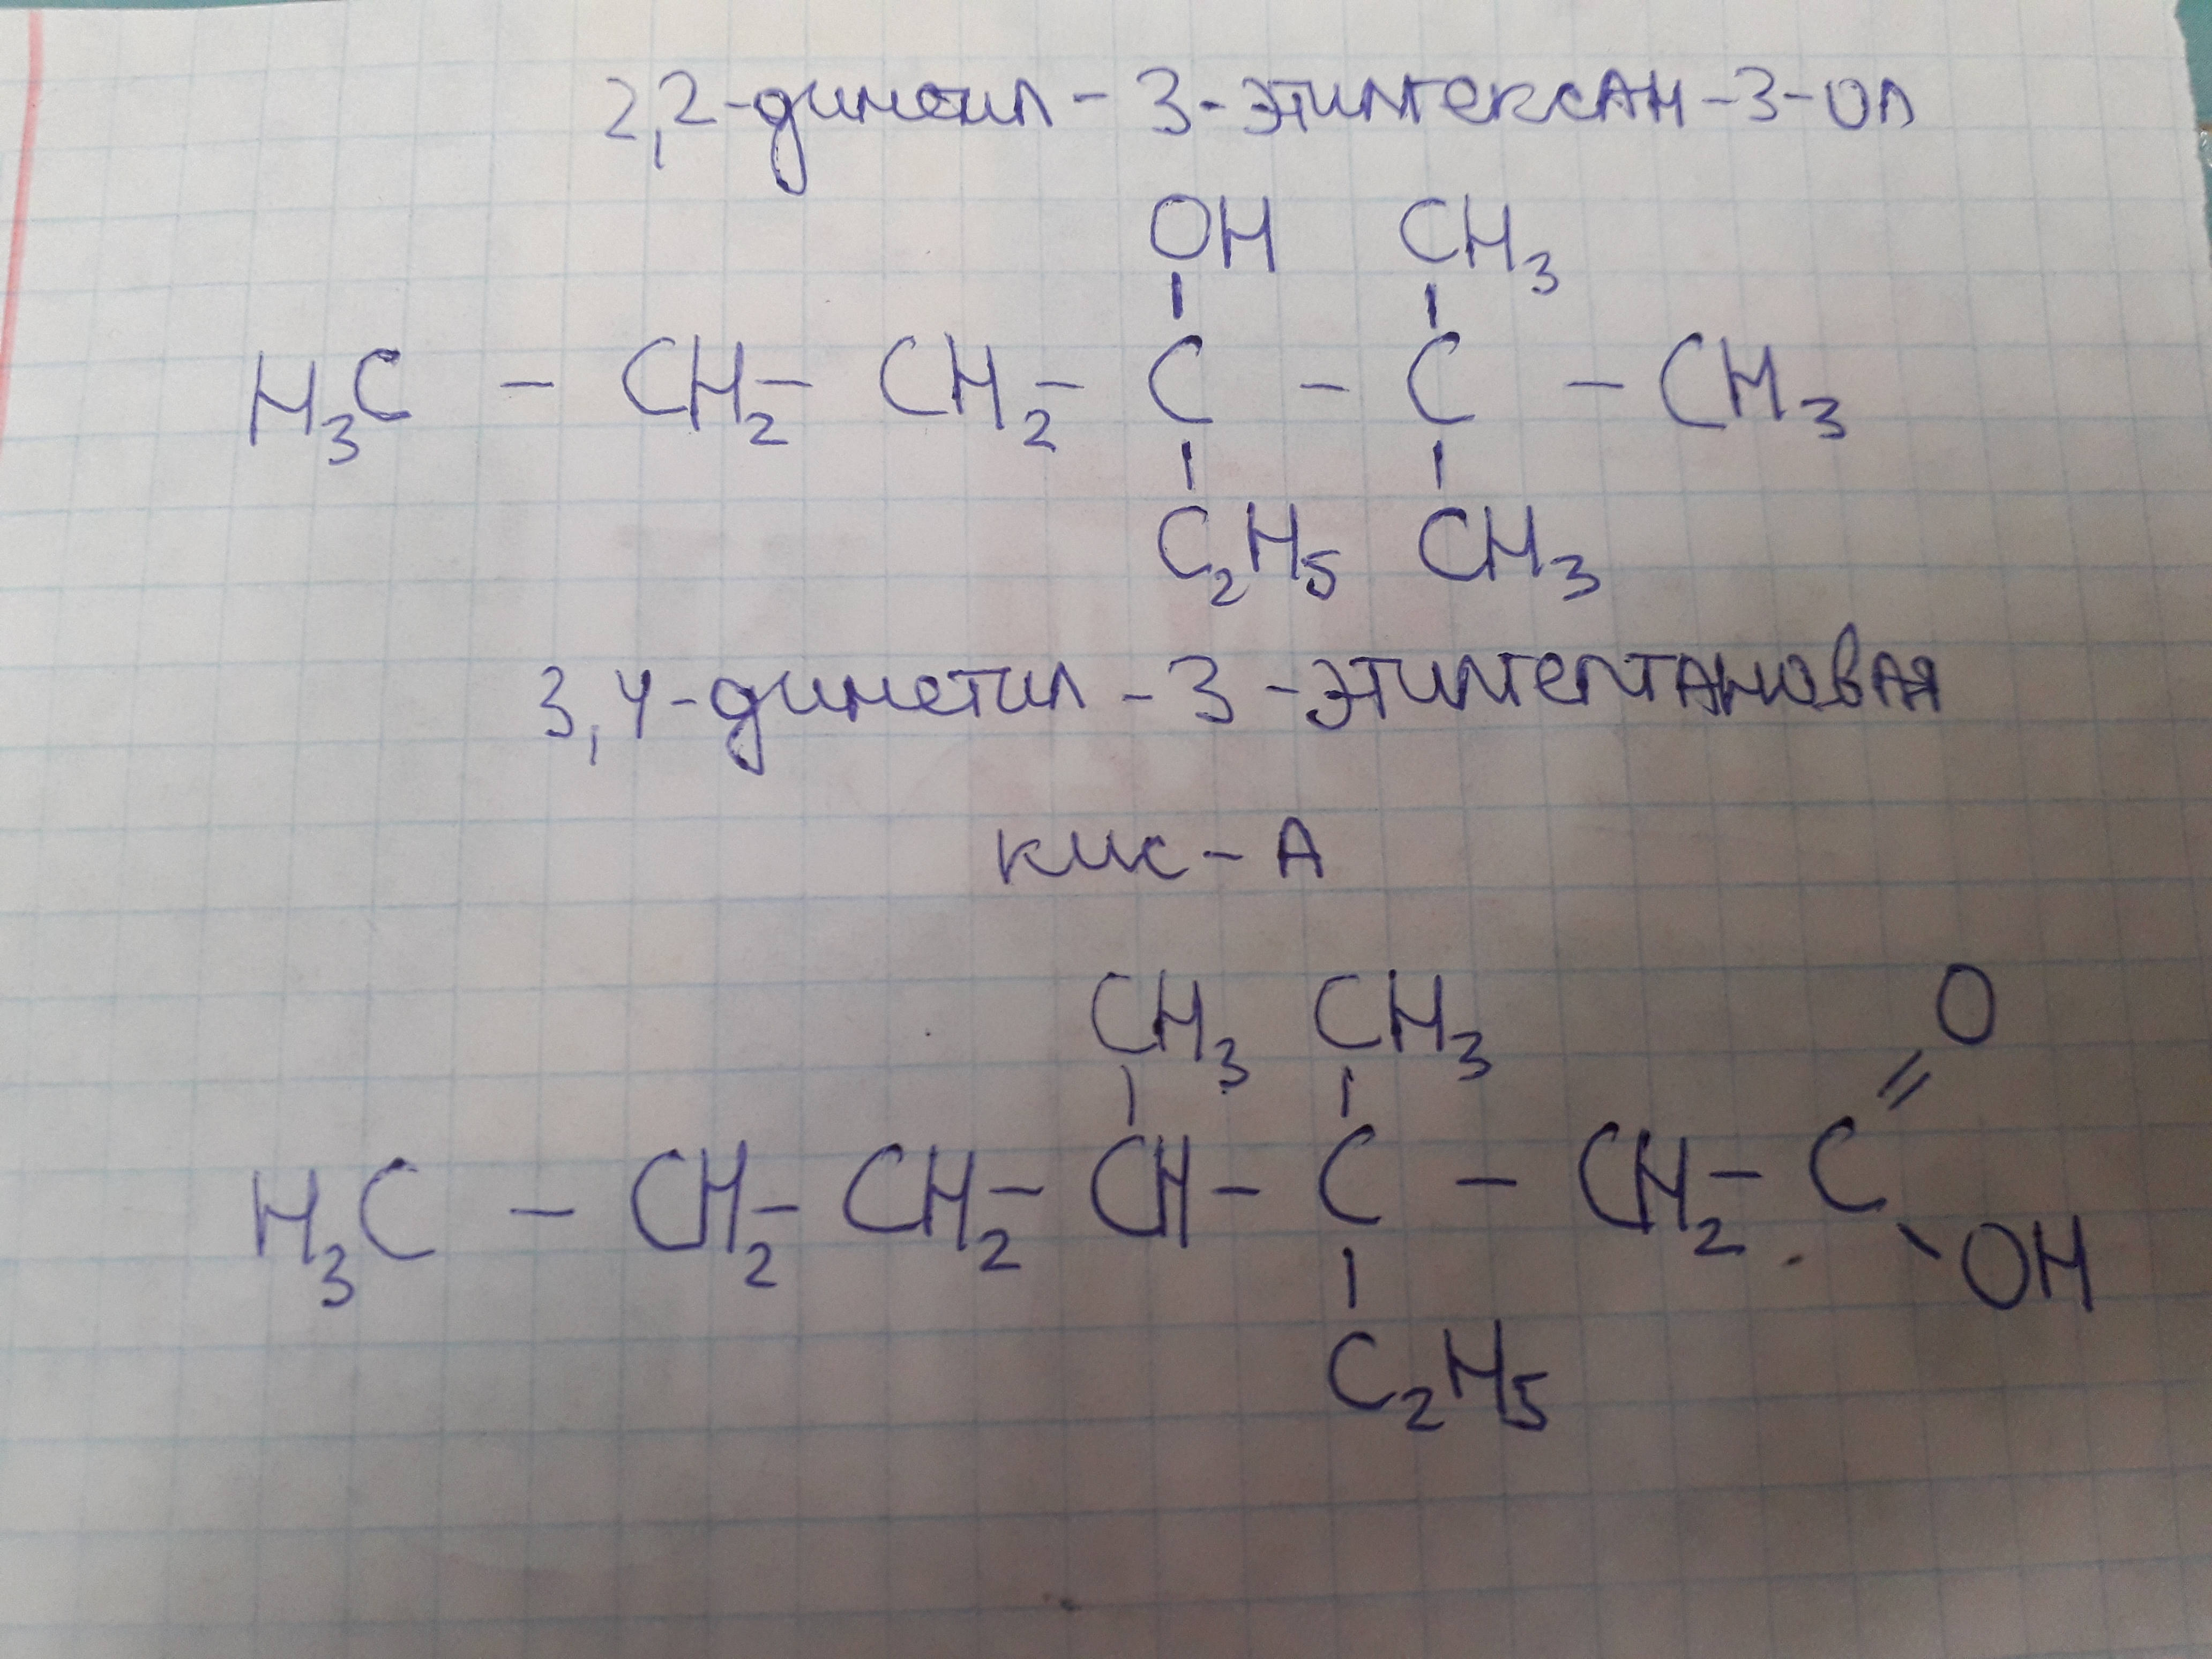 2,2-диметил-3-этилгексан-3-ол
OH CH3
H3C - CH2 - CH2 - C - C - CH3
C2H5 CH3
3,4-диметил-3-этилгептановая
кис-А
CH3 CH3 O
H3C - CH2 - CH2 - CH - C - CH2 - C
OH
C2H5